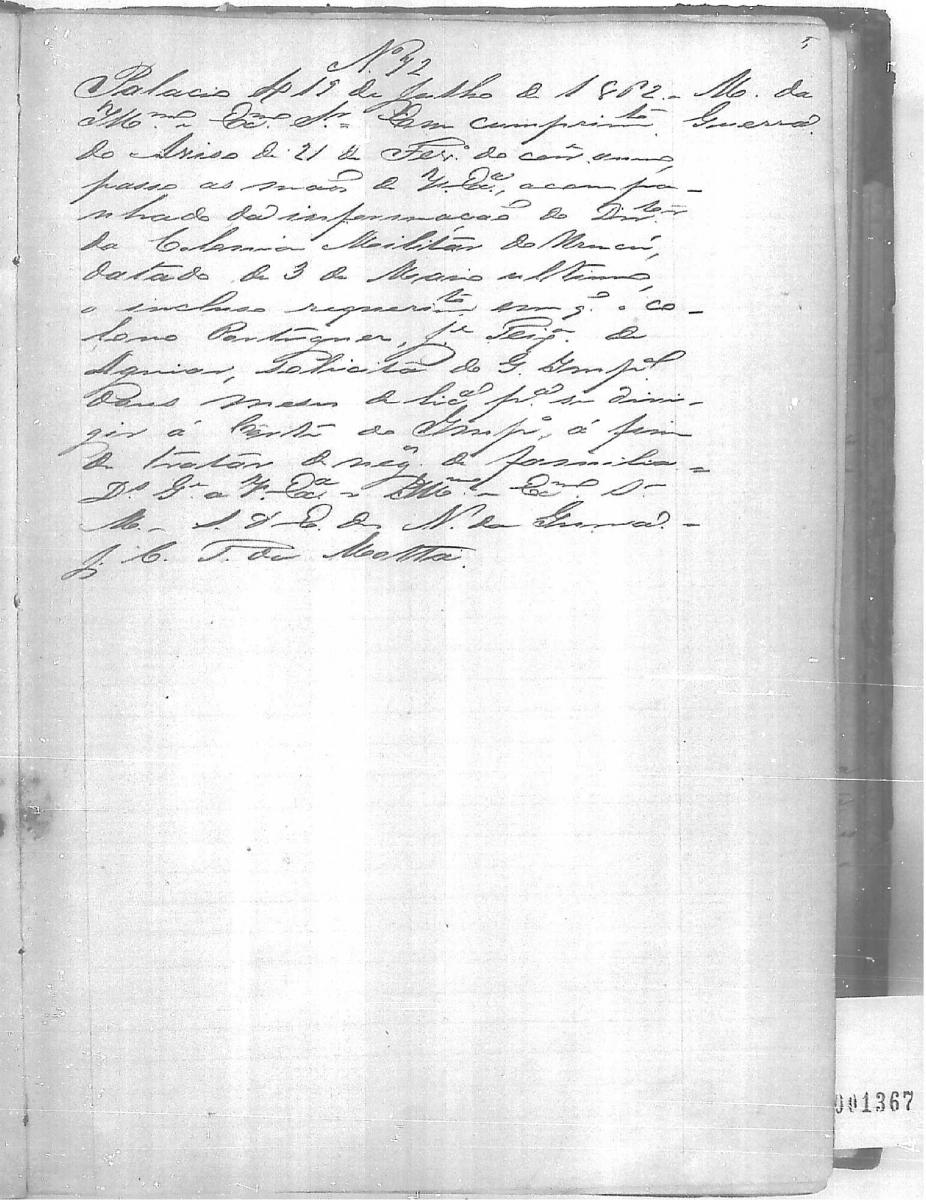 5
Nº 42
Palacio 19 de Julho de 1862 - M. da
Guerra.
Illmo. e Exmo. Sr. = Em cumprimto.
do Aviso de 21 de Fevº. do corre. anno,
passo as mãos de V. Exª., acompa-
nhado da informação do Dirtor.
da Colonia Militár do Urucú,
datado de 3 de Maio ultimo,
o incluso requerimto. em q. o co-
lono Portuguez, Je. Teixª. de
Aguiar, Solicita do G. Impal.
dous mezes de licª. pª. se diri-
gir á Corte do Impº., á fim
de tratár de neg. de familia =
Ds. Ge. a V. Exª. = Illmo. e Exmo. Sr.
M. S. d'E. dos N. da Guerra. -
J. C. T. da Motta.
001367